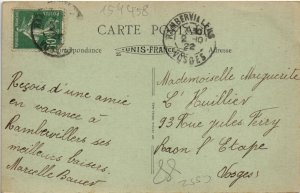 154458
CARTE POSTALE
Correspondance
UNIS-FRANCE
Adresse
RAMBERVILLERS
2 - 10
22
VOSGES
Reçois d'une amie
en vacance à
Rambervillers ses
meilleurs baisers.
Marcelle Bauer
Mademoiselle Marguerite
L'Huillier
93 Rue Jules Ferry
Raon l'Etape
Vosges
88